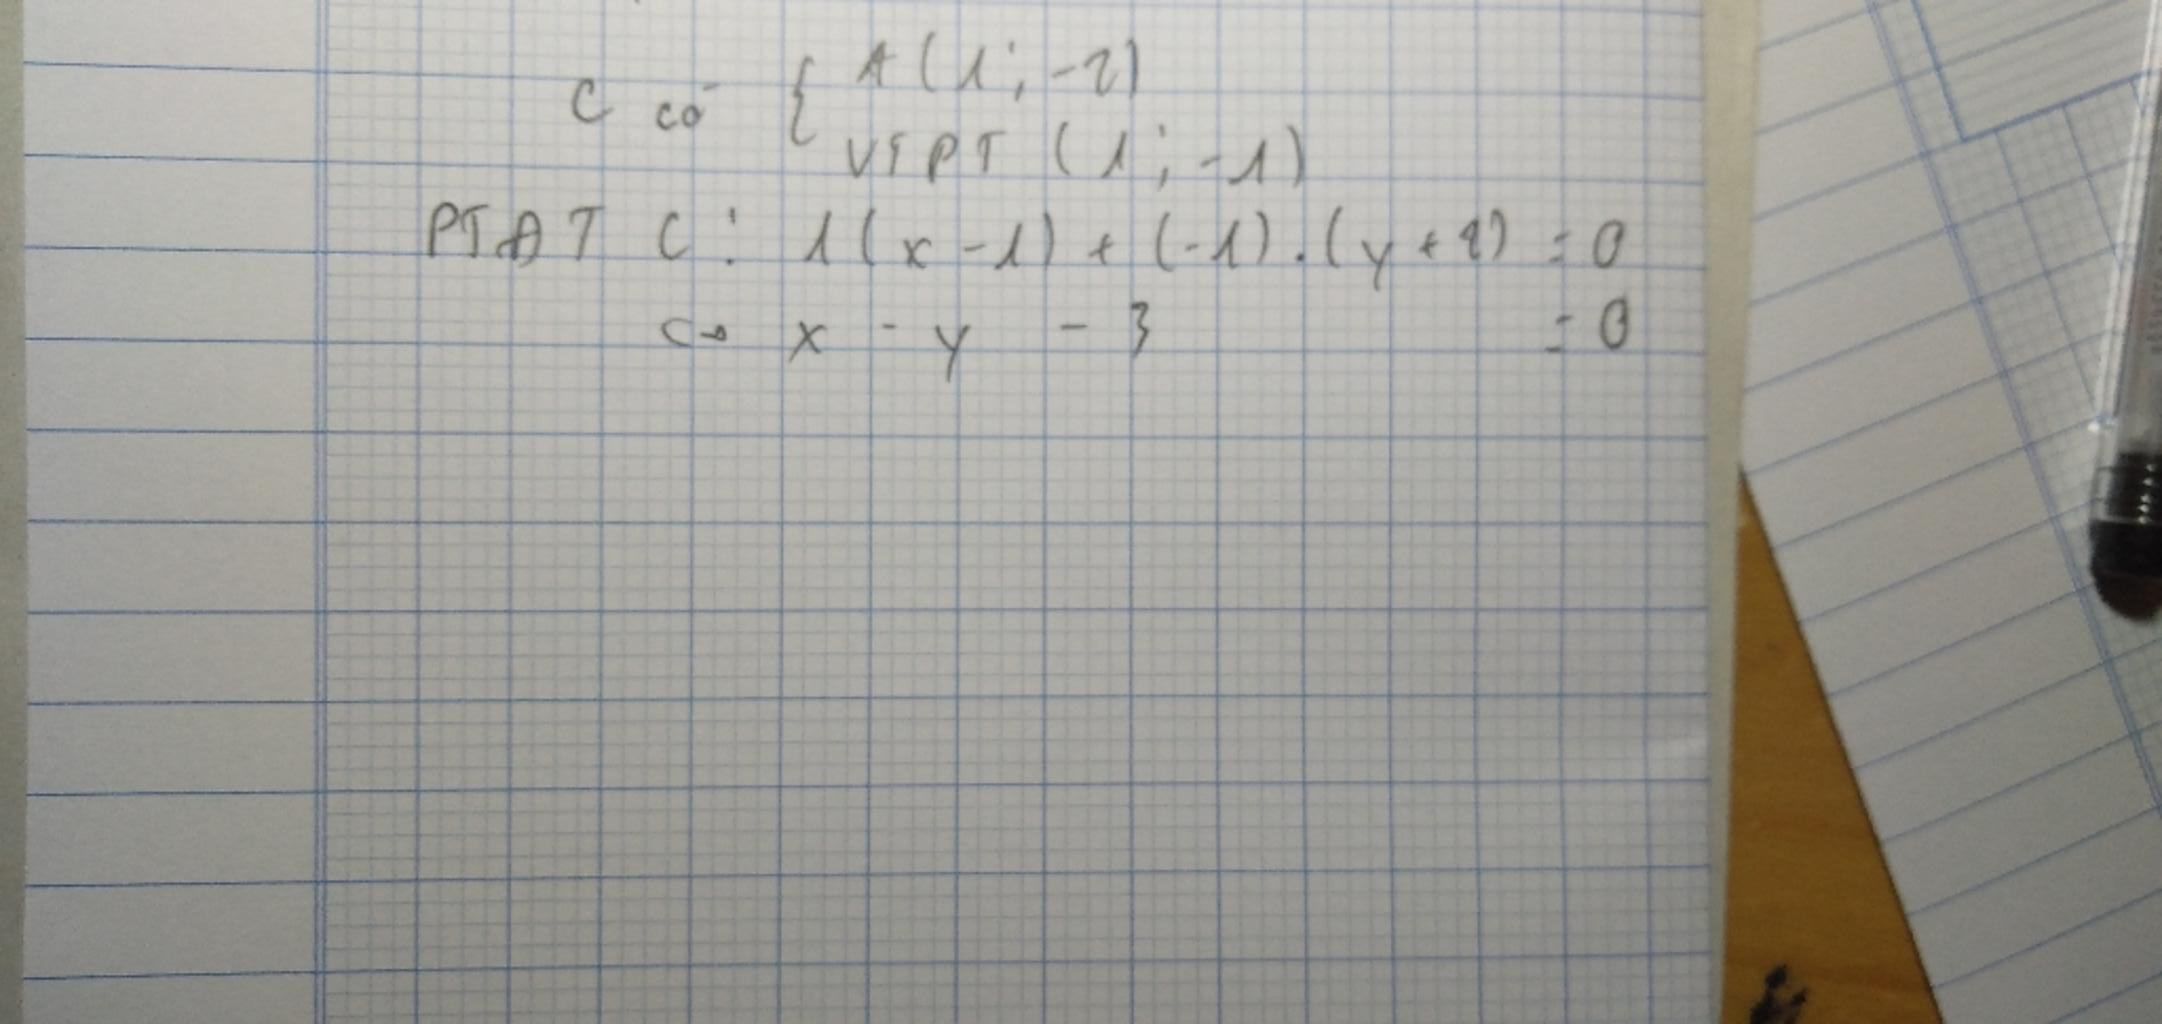 C có { A(1; -2)
VTPT (1; -1)
PTĐT C: 1(x - 1) + (-1).(y + 2) = 0
<=> x - y - 3 = 0